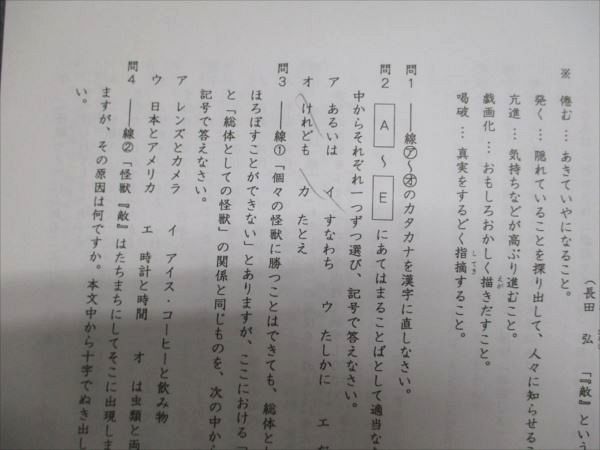 （長田 弘 『「敵」という
※ 倦む … あきていやになること。
発く … 隠れていることを探り出して、人々に知らせる
亢進 … 気持ちなどが高ぶり進むこと。
戯画化 … おもしろおかしく描きだすこと。
喝破 … 真実をするどく指摘すること。
問1 ――線㋐〜㋔のカタカナを漢字に直しなさい。
問2 A 〜 E にあてはまることばとして適当な
中からそれぞれ一つずつ選び、記号で答えなさい。
ア あるいは イ すなわち ウ たしかに エ
オ けれども カ たとえ
問3 ――線①「個々の怪獣に勝つことはできても、総体と
ほろぼすことができない」とありますが、ここにおける「
と「総体としての怪獣」の関係と同じものを、次の中か
記号で答えなさい。
ア レンズとカメラ イ アイス・コーヒーと飲み物
ウ 日本とアメリカ エ 時計と時間 オ は虫類と両
問4 ――線②「怪獣『敵』はたちまちにしてそこに出現し
ますが、その原因は何ですか。本文中から十字でぬき出し
い。